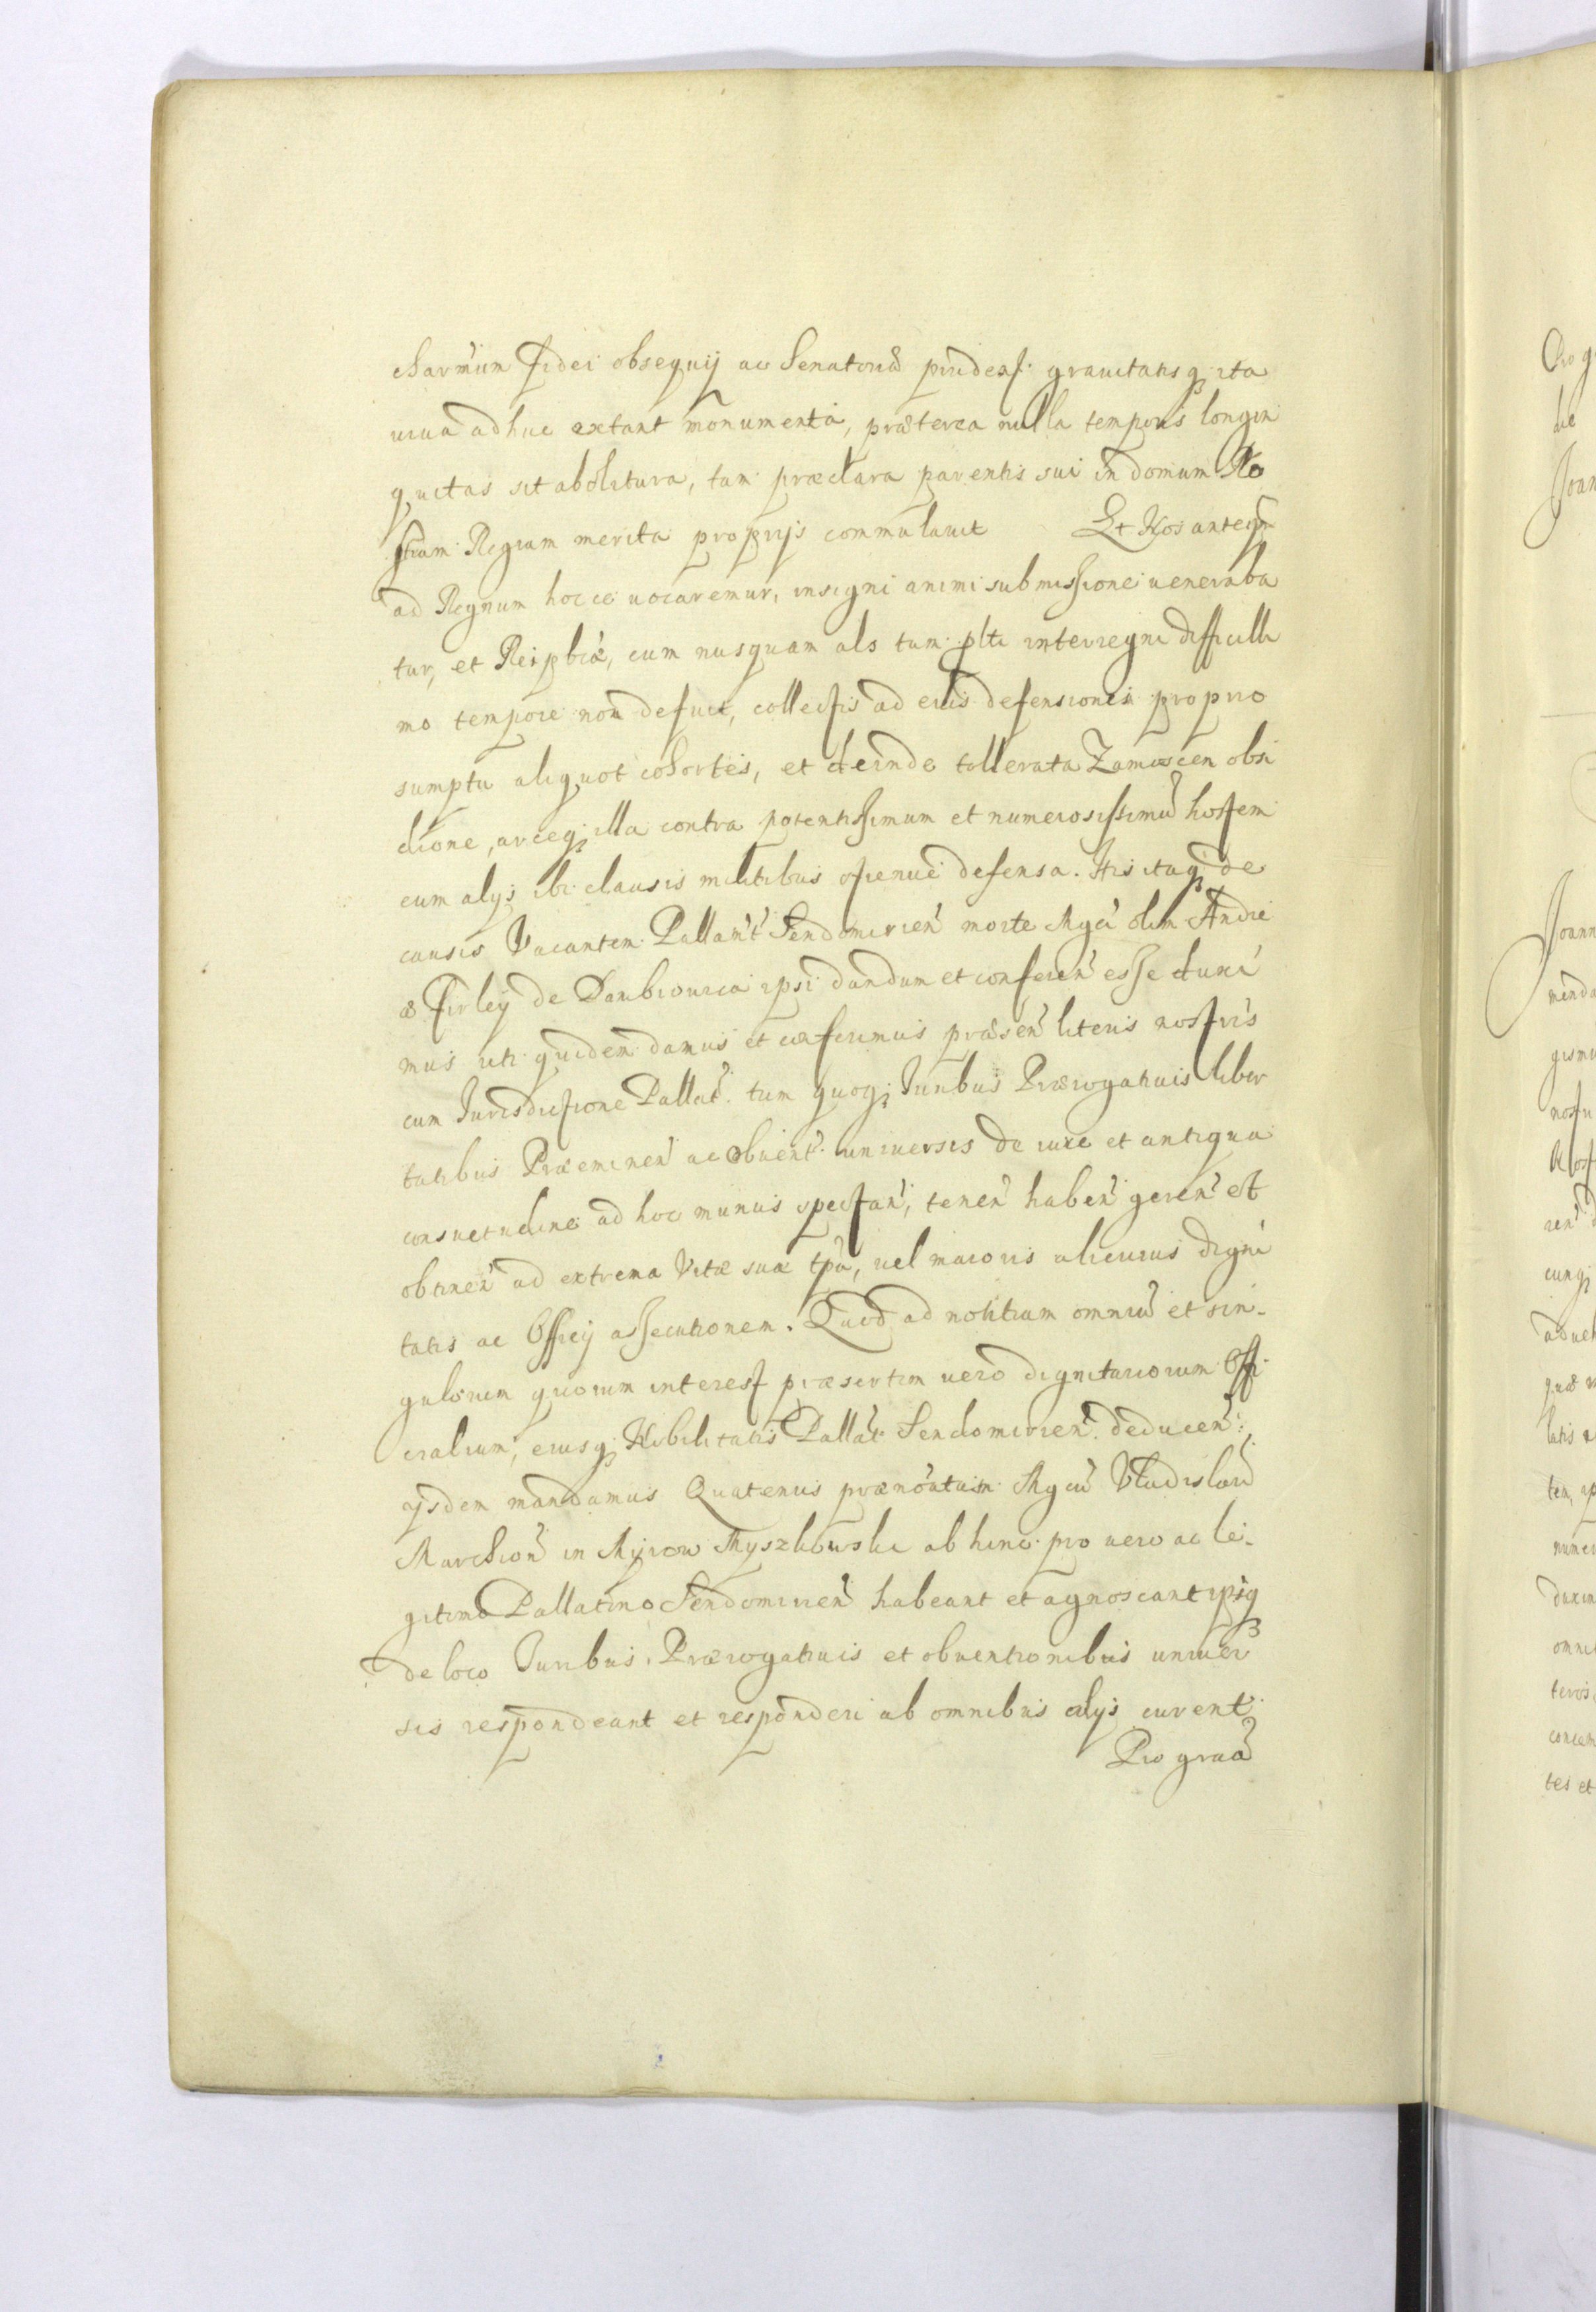 charissimum fidei obsequij ac Senatoriã prudeaſ. grauitatisq ita
uiua adhuc extant monumenta, præterea nulla temporis longin
quitas sit abolitura, tam præclara parentis sui in domum No
stram Regiam merita proprijs commulauit Et Nos anteqm
ad Regnum hocce uocaremur, insigni animi submissione ueneraba
tur, et Reipbcæ, cum nusquam als tum plti interregni difficilli
mo tempore non defuit, collectis ad eius defensionem proprio
sumptu aliquot cohortes, et deinde tollerata Zamoscen obsi
dione, arceq illa contra potentissimum et numerosissimũ hostem
cum alijs ibi clausis militibus strenue defensa. His itaq de
causis Vacantem Pallant Sendomirien morte Mgci olim Andre
æ Firleÿ de Dambrouica ipsi dandum et conferen esse duxi
mus uti quidem damus et conferimus præsen literis nostris
cum Jurisdictione Pallat. tum quoq Juribus Prærogatiuis liber
tatibus Præeminen ac obuent. uniuersis de iure et antiqua
consuetudine ad hoc munus spectan, tenen haben geren et
obtinen ad extrema Vitæ suæ tpa, uel maioris alicuius digni
tatis ac Officij assecutionem. Quod ad notitiam omniũ et sin-
gulorum quorum interest præsertim uero dignitariorum Offi
cialium, eiusq Nobilitatis Pallat Sendomirien. deducen:,
ijsdem mandamus Quatenus prænõtatum Mgcũ Vladislaũ
Marchion in Mÿrow Myszkowski abhinc pro uero ac le-
gitimo Pallatino Sendomirien habeant et agnoscant ipsiq
de loco Juribus. Prærogatiuis et obuentionibus uniuer
sis respondeant et responderi ab omnibus alijs curent
Pro graa